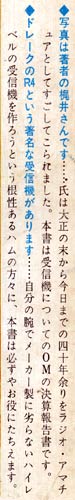 ◆写真は著者の梶井さんです……氏は大正の末から今日までの四十年余りをラジオ・アマチ
ュアとしてすごしてこられました。本書は受信機についてのOMの決算報告書です。
◆ドレークのR4という著名な受信機があります……自分の腕でメーカー製に劣らないハイレ
ベルの受信機を作ろうという根性あるハムの方々に、本書は必ずやお役にたちえます。